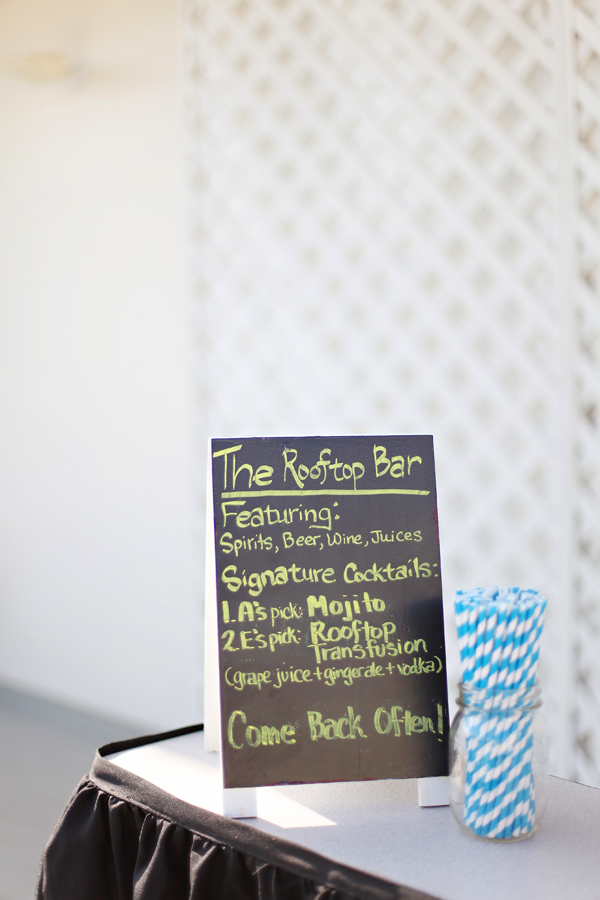 The Rooftop Bar
Featuring:
Spirits, Beer, Wine, Juices
Signature Cocktails:
1. A's pick: Mojito
2. E's pick: Rooftop
Transfusion
(grape juice + gingerale + vodka)
Come Back Often!